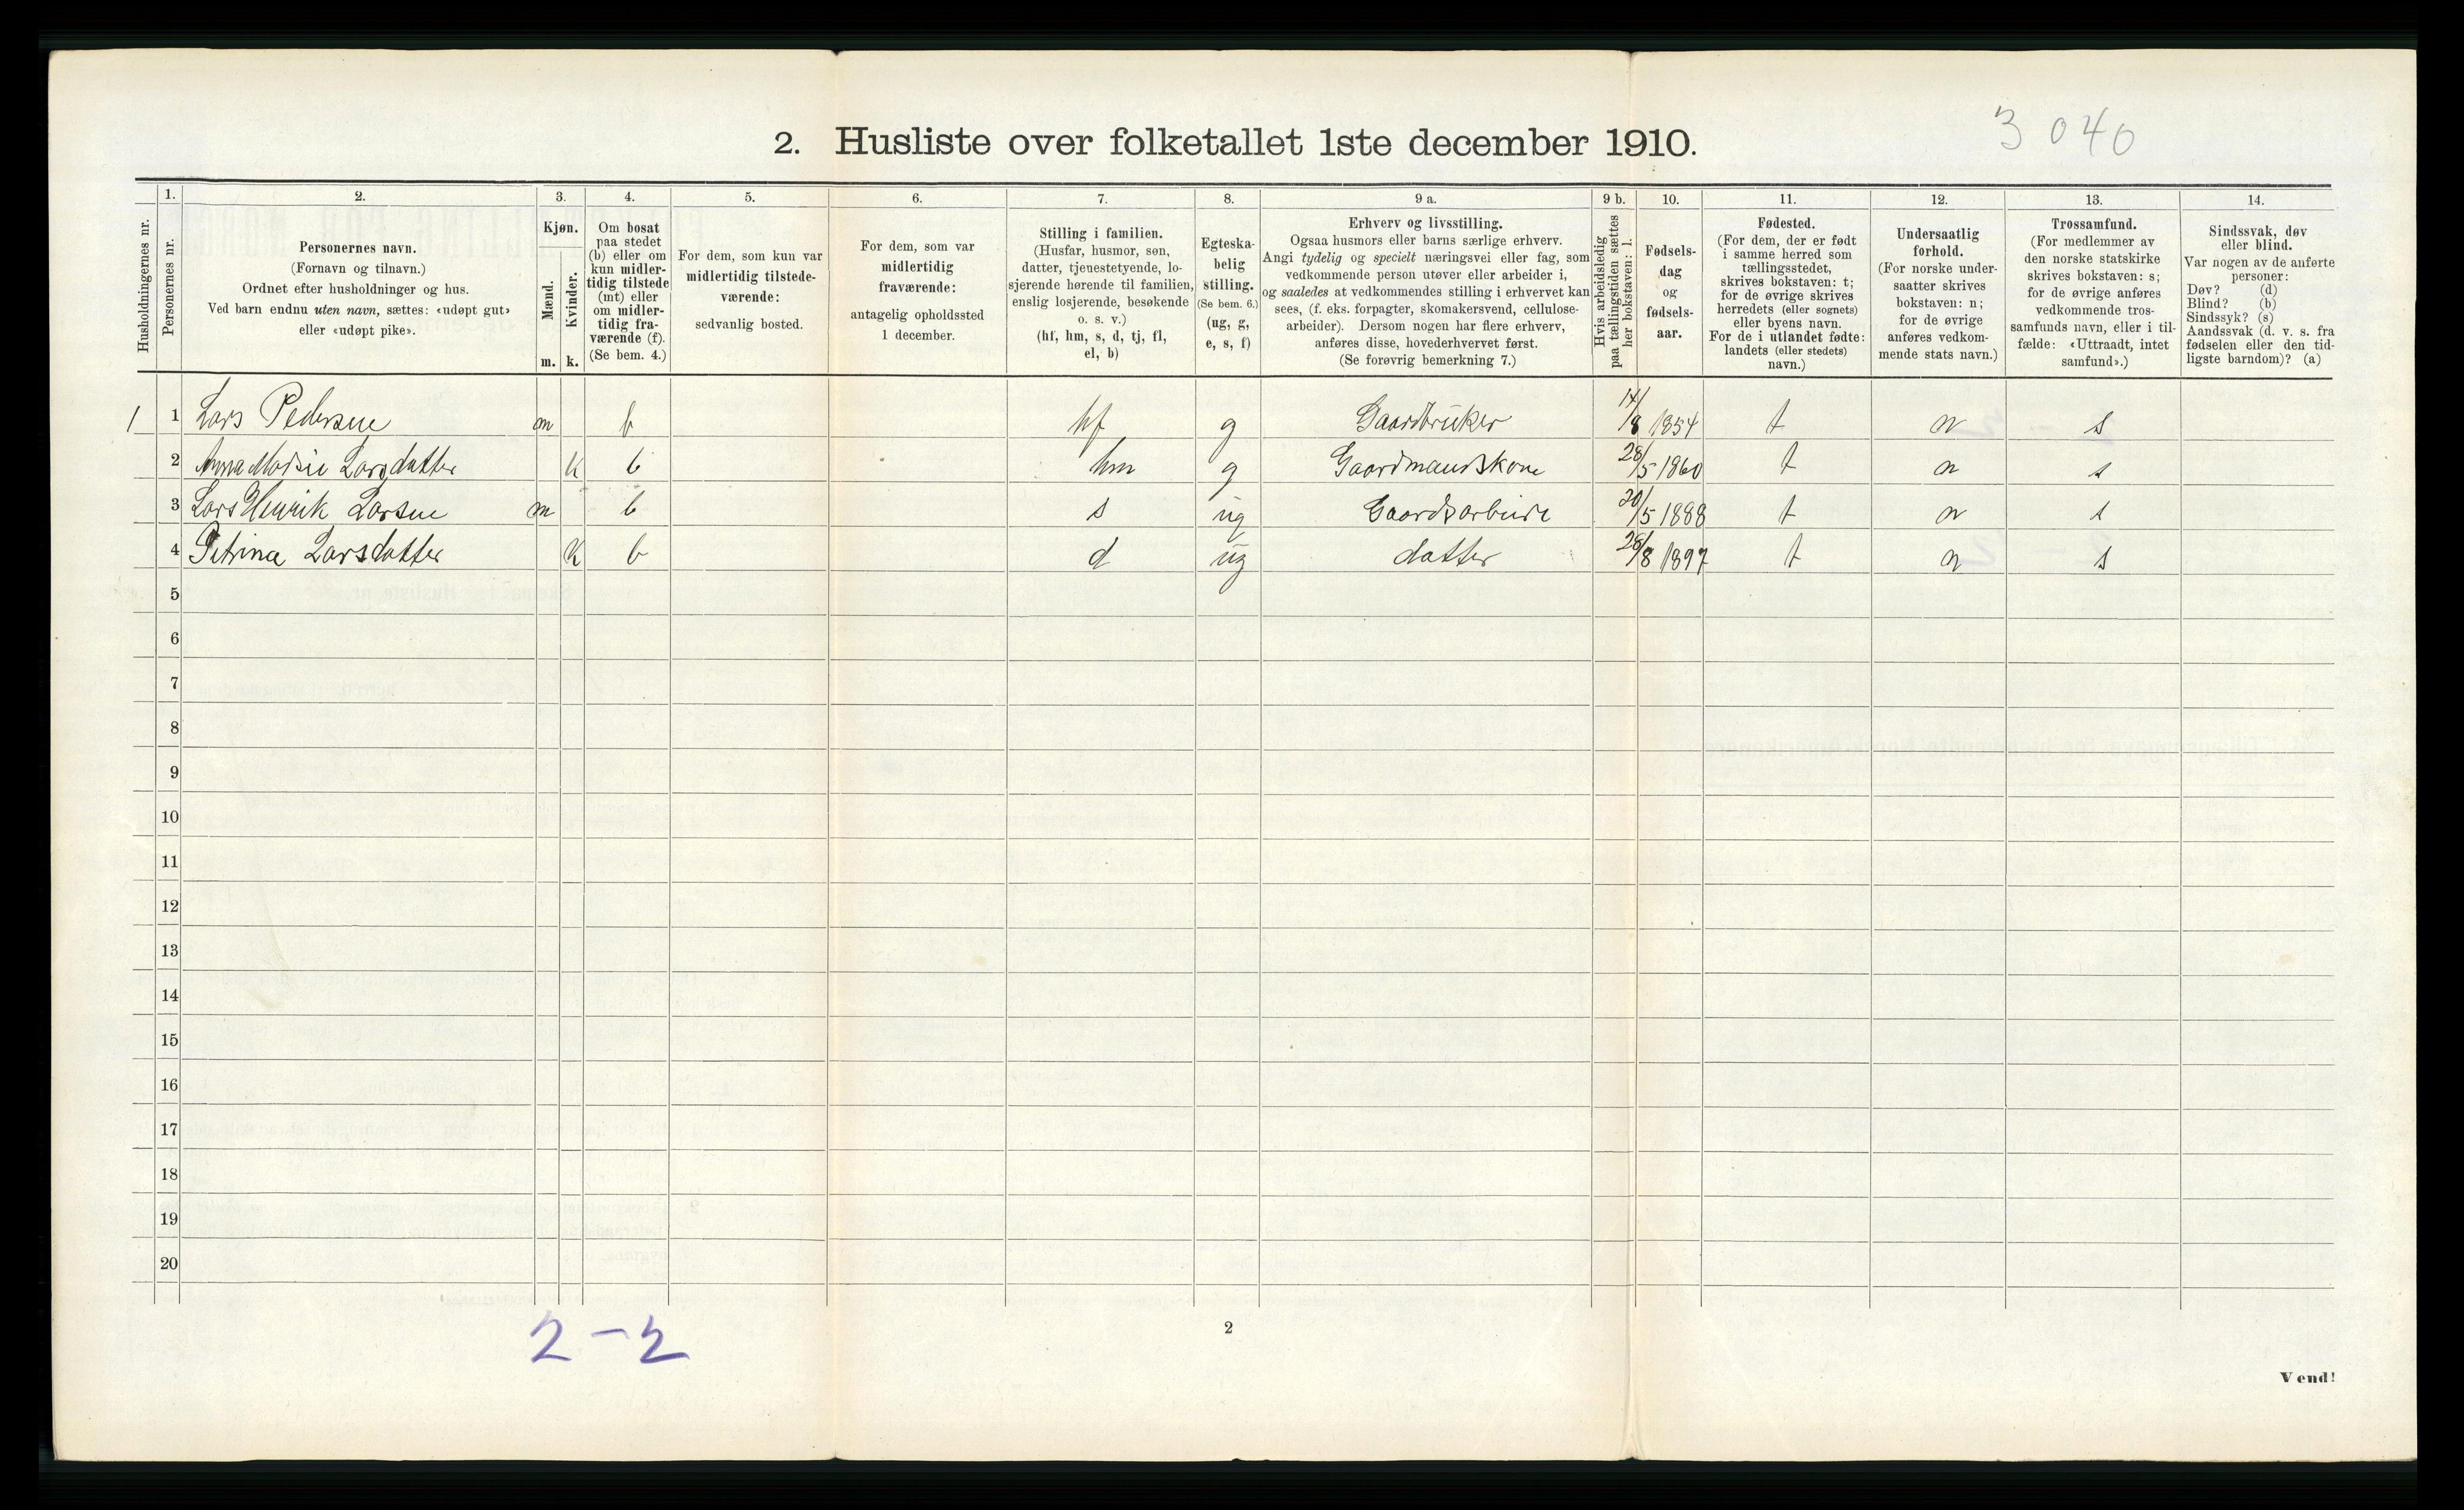 3 040
2. Husliste over folketallet 1ste december 1910.
Husholdningernes nr.
1.
Personernes nr.
2.
Personernes navn.
(Fornavn og tilnavn.)
Ordnet efter husholdninger og hus.
Ved barn endnu uten navn, sættes: «udøpt gut»
eller «udøpt pike».
3.
Kjøn.
Mænd.
Kvinder.
m. k.
4.
Om bosat
paa stedet
(b) eller om
kun midler-
tidig tilstede
(mt) eller
om midler-
tidig fra-
værende (f).
(Se bem. 4.)
5.
For dem, som kun var
midlertidig tilstede-
værende:
sedvanlig bosted.
6.
For dem, som var
midlertidig
fraværende:
antagelig opholdssted
1 december.
7.
Stilling i familien.
(Husfar, husmor, søn,
datter, tjenestetyende, lo-
sjerende hørende til familien,
enslig losjerende, besøkende
o. s. v.)
(hf, hm, s, d, tj, fl,
el, b)
8.
Egteska-
belig
stilling.
(Se bem. 6.)
(ug, g,
e, s, f)
9 a.
Erhverv og livsstilling.
Ogsaa husmors eller barns særlige erhverv.
Angi tydelig og specielt næringsvei eller fag, som
vedkommende person utøver eller arbeider i,
og saaledes at vedkommendes stilling i erhvervet kan
sees, (f. eks. forpagter, skomakersvend, cellulose-
arbeider). Dersom nogen har flere erhverv,
anføres disse, hovederhvervet først.
(Se forøvrig bemerkning 7.)
9 b.
Hvis arbeidsledig
paa tællingstiden sættes
her bokstaven: l.
10.
Fødsels-
dag
og
fødsels-
aar.
11.
Fødested.
(For dem, der er født
i samme herred som
tællingsstedet,
skrives bokstaven: t;
for de øvrige skrives
herredets (eller sognets)
eller byens navn.
For de i utlandet fødte:
landets (eller stedets)
navn.)
12.
Undersaatlig
forhold.
(For norske under-
saatter skrives
bokstaven: n;
for de øvrige
anføres vedkom-
mende stats navn.)
13.
Trossamfund.
(For medlemmer av
den norske statskirke
skrives bokstaven: s;
for de øvrige anføres
vedkommende tros-
samfunds navn, eller i til-
fælde: «Uttraadt, intet
samfund».)
14.
Sindssvak, døv
eller blind.
Var nogen av de anførte
personer:
Døv? (d)
Blind? (b)
Sindssyk? (s)
Aandssvak (d. v. s. fra
fødselen eller den tid-
ligste barndom)? (a)
1 1 Lars Pedersen m b hf g Gaardbruker 14/8 1854 t n s
2 Anna Marie Larsdatter k b hm g Gaardmandskone 28/5 1860 t n s
3 Lars Henrik Larsen m b s ug Gaardsarbeide 20/5 1888 t n s
4 Petrina Larsdatter k b d ug datter 28/8 1897 t n s
5
6
7
8
9
10
11
12
13
14
15
16
17
18
19
20
2-2
2
Vend!